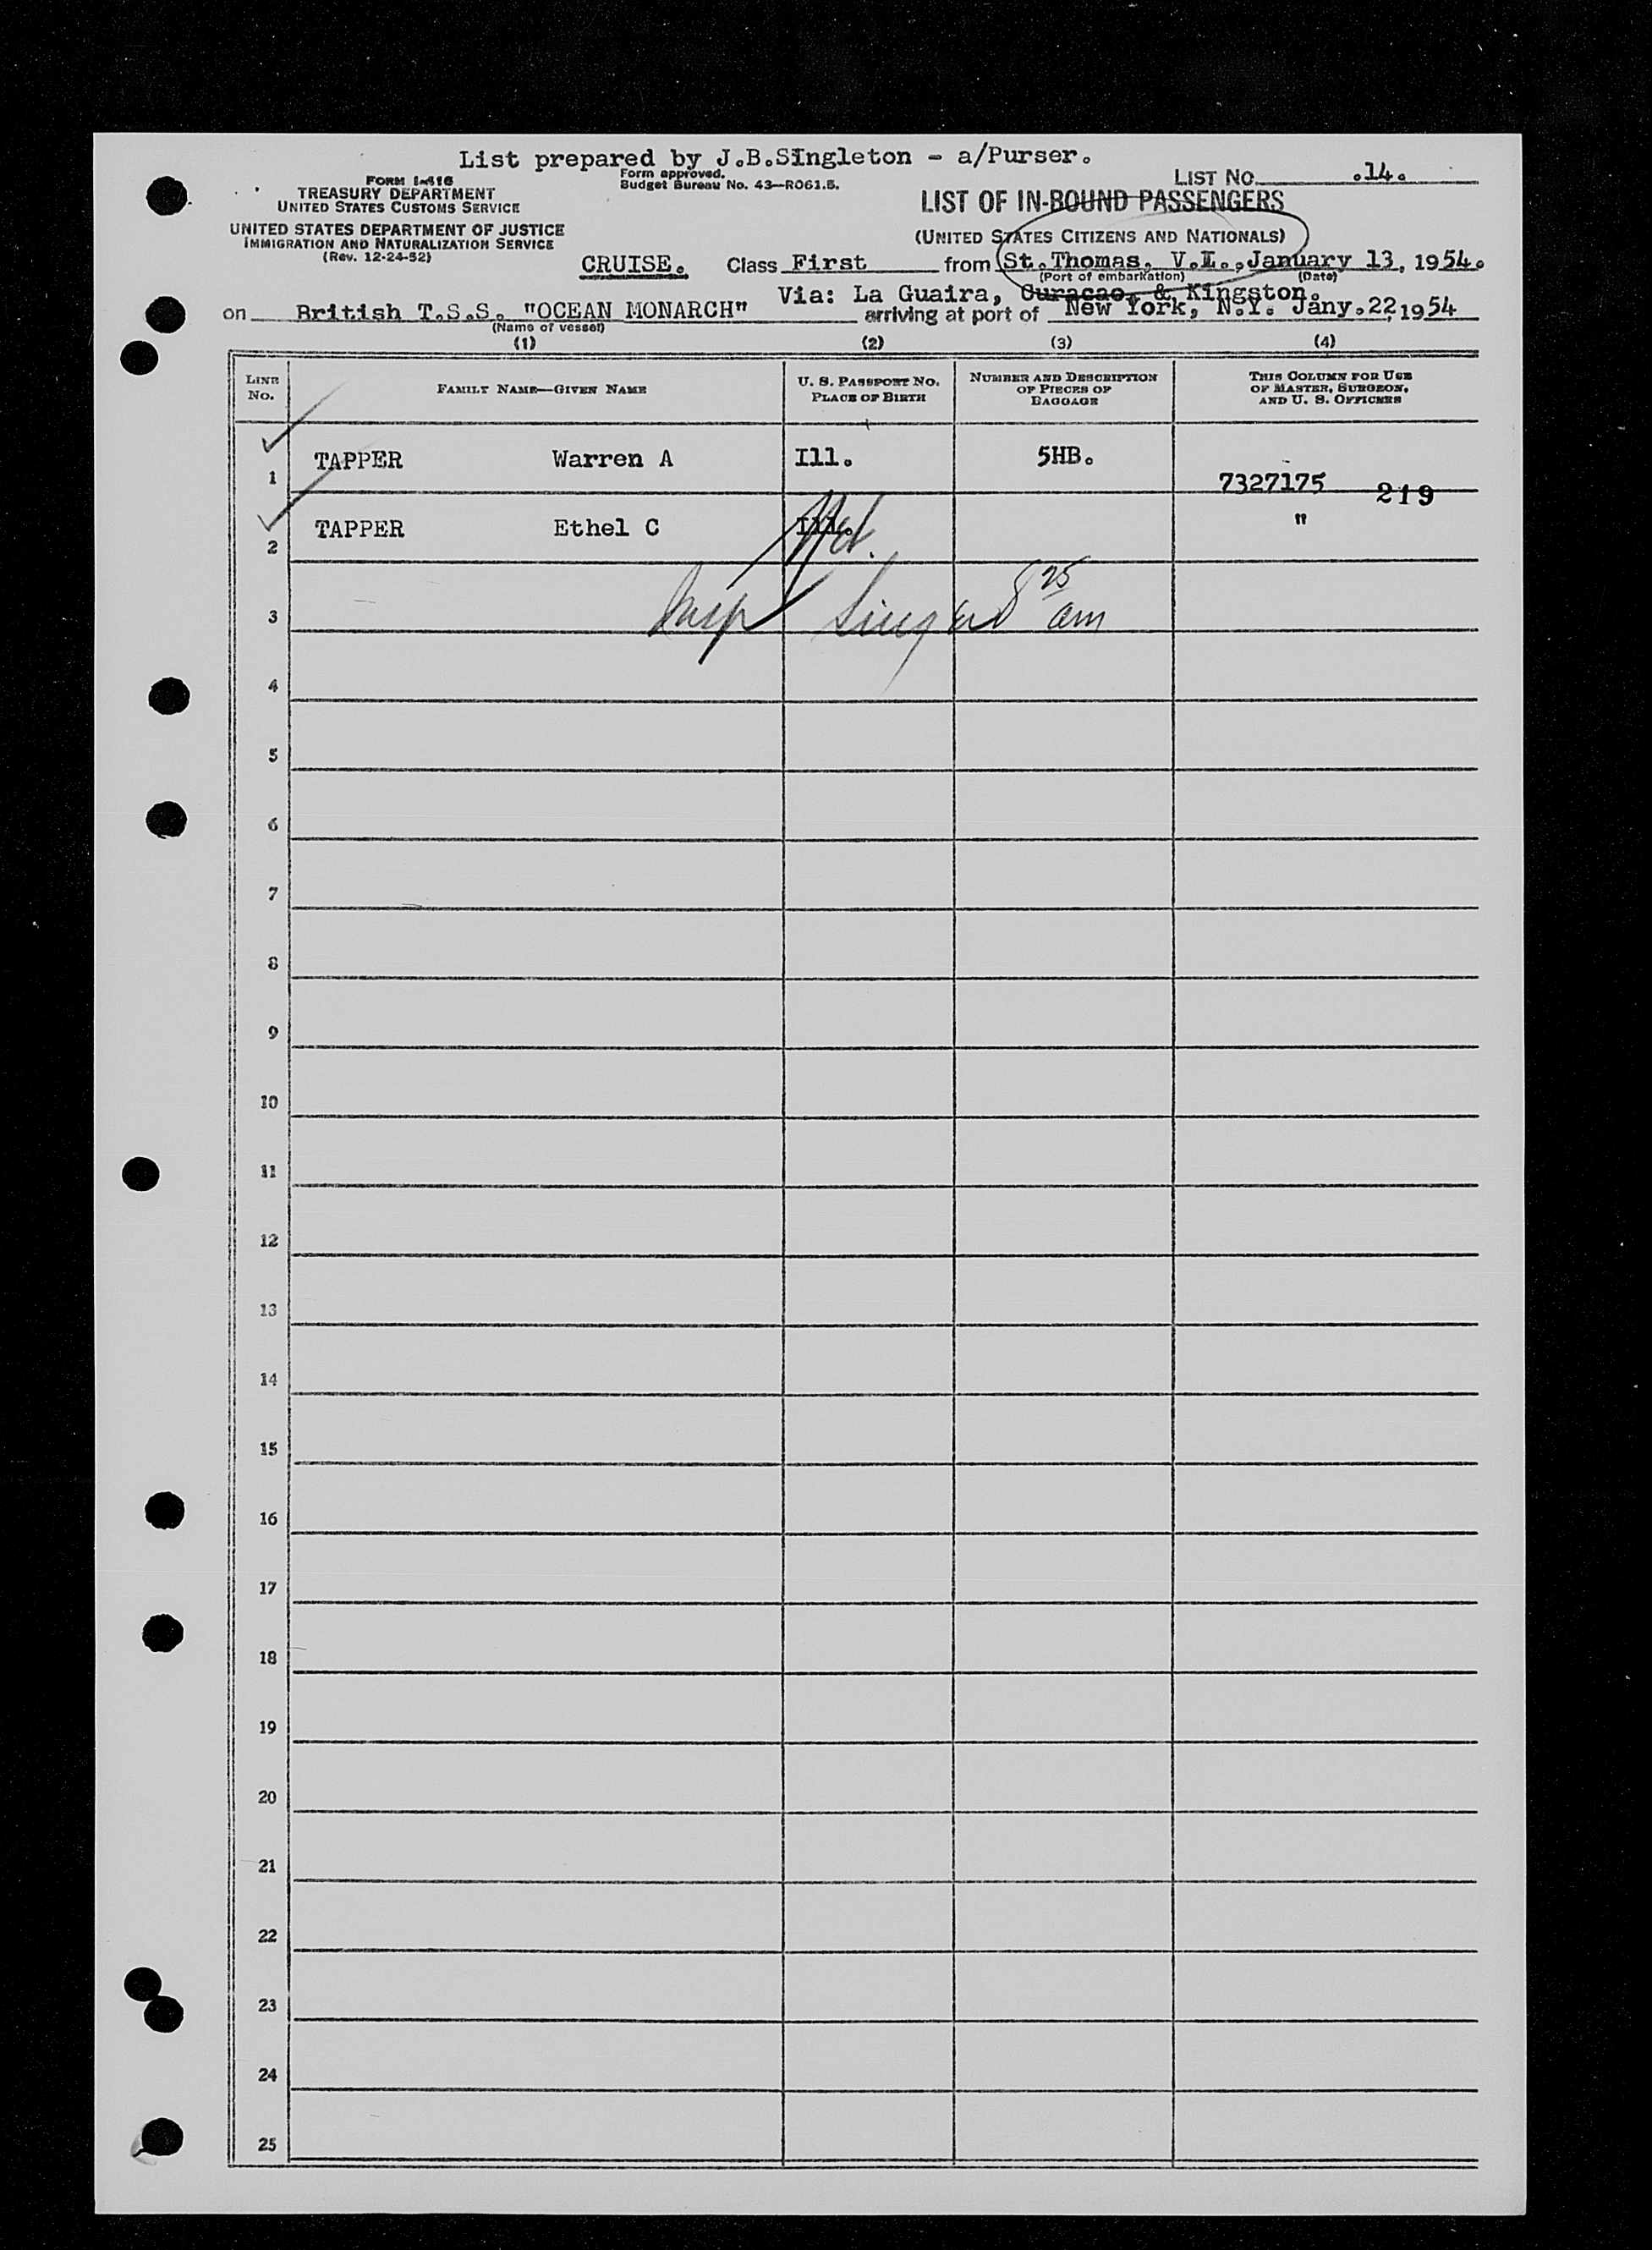 List prepared by J.B.SIngleton - a/Purser.
FORM I-416
TREASURY DEPARTMENT
UNITED STATES CUSTOMS SERVICE
UNITED STATES DEPARTMENT OF JUSTICE
IMMIGRATION AND NATURALIZATION SERVICE
(Rev. 12-24-52)
Form approved.
Budget Bureau No. 43—R061.5.
LIST NO. .14.
LIST OF IN-BOUND PASSENGERS
(UNITED STATES CITIZENS AND NATIONALS)
CRUISE. Class First from St.Thomas. V.I., January 13, 1954.
(Port of embarkation) (Date)
Via: La Guaira, Curacao, & Kingston.
on British T.S.S. "OCEAN MONARCH" arriving at port of New York, N.Y. Jany.22, 1954
(Name of vessel)
(1) (2) (3) (4)
LINE No. FAMILY NAME—GIVEN NAME U. S. PASSPORT NO. PLACE OF BIRTH NUMBER AND DESCRIPTION OF PIECES OF BAGGAGE THIS COLUMN FOR USE OF MASTER, SURGEON, AND U. S. OFFICERS
1 TAPPER Warren A Ill. 5HB. 7327175 219
2 TAPPER Ethel C Ill. "
3 Insp 8 25 am
4
5
6
7
8
9
10
11
12
13
14
15
16
17
18
19
20
21
22
23
24
25